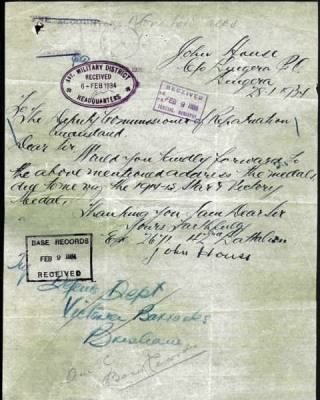 John House
C/o Zingera P.O.
Zingera
1ST. MILITARY DISTRICT
RECEIVED
6-FEB 1934
HEADQUARTERS
RECEIVED
FEB 9 1934
To
The Deputy Commissioner of Repatriation
Queensland
Dear Sir
Would you kindly forward to
the above mentioned address the medals
due to me viz the 1914-15 Star & Victory
Medal,
Thanking You I am Dear Sir
Yours faithfully
Battalion
John House
BASE RECORDS
FEB 9 1934
RECEIVED
Defence Dept
Victoria Barracks
Brisbane